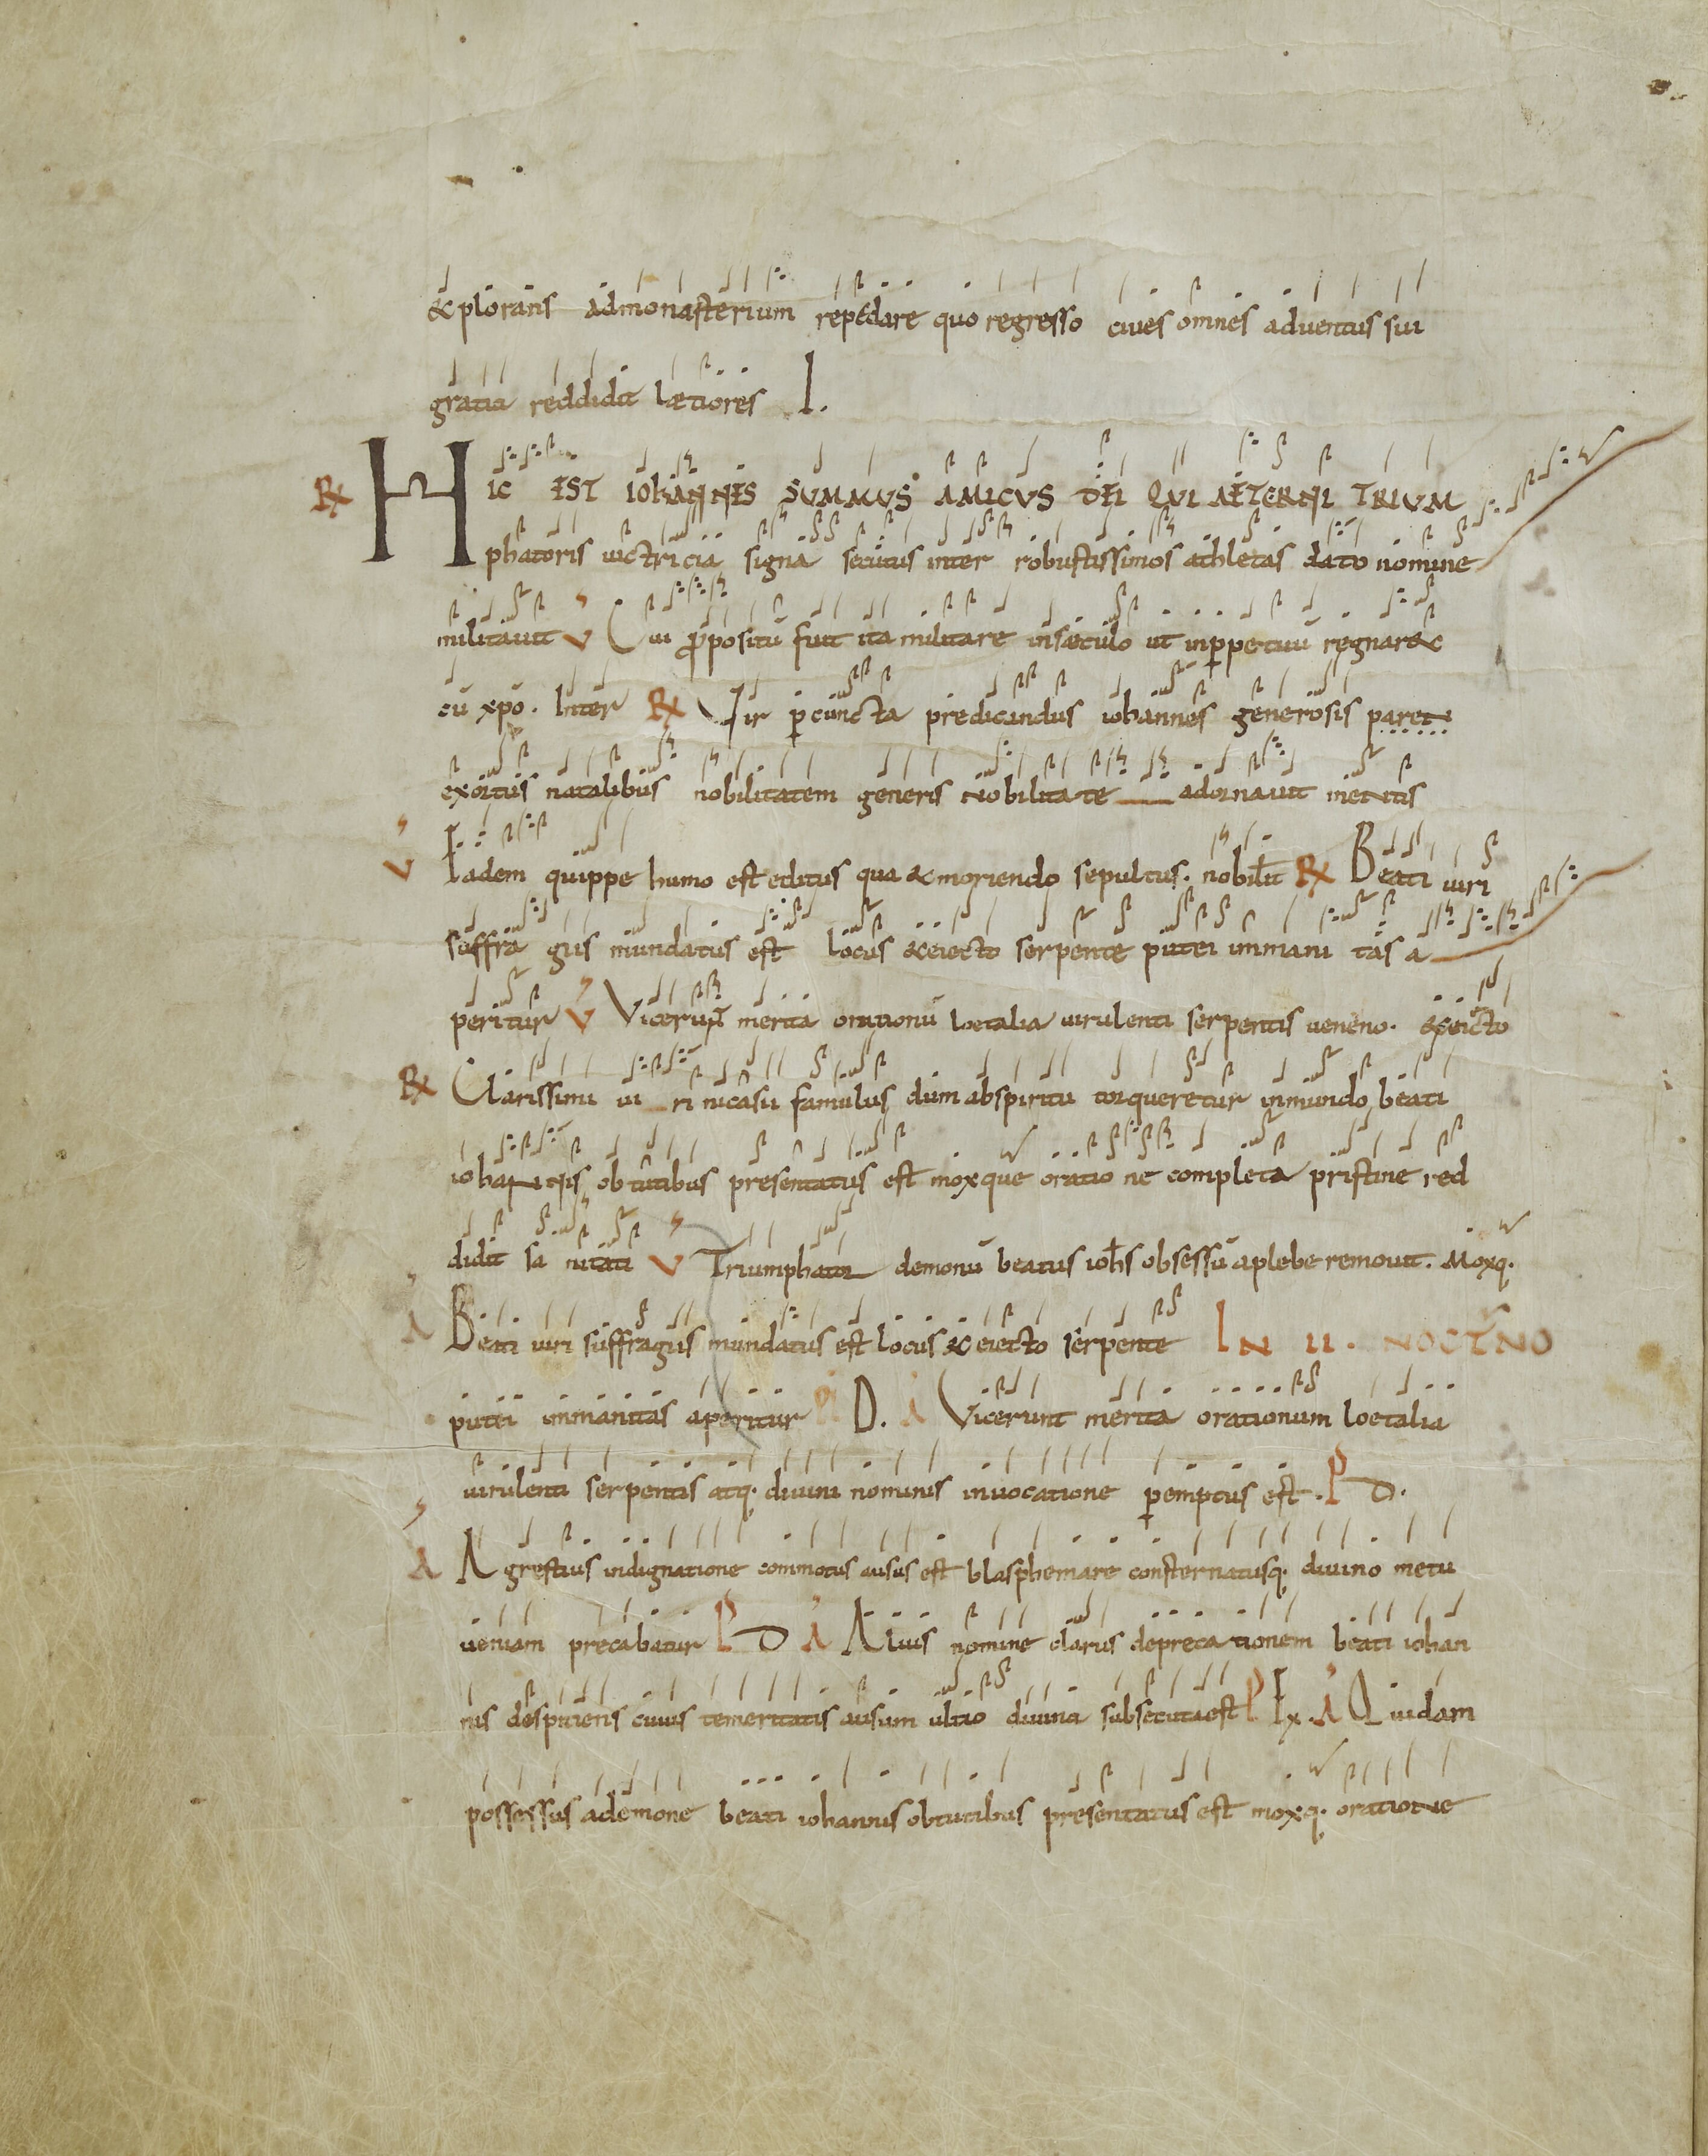 &plorans admonasterium rep&dare quo regresso ciues omnes aduentus sui
gratia reddidit lætiores I.
R HIC EST IOHANNES SUMMUS AMICUS DEI QUI AETERNI TRIUM
phatoris uictricia signa secutus inter robustissimos athletas dato nomine
militauit V Cui p̄positū fuit ita militare insæculo ut inp̱petuū regnar&
cū xp̄o. Inter R Vir p̱cuncta predicandus iohannes generosis paren
exortus natalibus nobilitatem generis nobilitate adornauit mentis
V Eadem quippe humo est editus qua &moriendo sepultus. nobilit̄ R Beati uiri
suffra giis mundatus est locus &eiecto serpente putei immani tas a
peritur V Vicerunt merita orationū loetalia uirulenti serpentis ueneno. &eiecto
R Clarissimi ui ri nicasii famulus dum abspiritu torqueretur inmundo beati
iohannis obtutibus presentatus est moxque oratio ne completa pristine red
didit sa nitati V Triumphator demonū beatus ioh̄s obsessū aplebe remouit. Moxq.
A Beati uiri suffragiis mundatus est locus & eiecto serpente IN II. NOCTNO
putei immanitas aperitur P D. A Vicerunt merita orationum loetalia
uirulenti serpentis atq. diuini nominis inuocatione p̱emptus est. P D.
A Agrestius indignatione commotus ausus est blasphemare consternatusq. diuino metu
ueniam precabatur P D A Alius nomine clarus deprecationem beati iohan
nis despiciens cuius temeritatis ausum ultio diuina subsecuta est P Ex. A Quidam
possessus ademone beati iohannis obtutibus presentatus est moxq. oratione